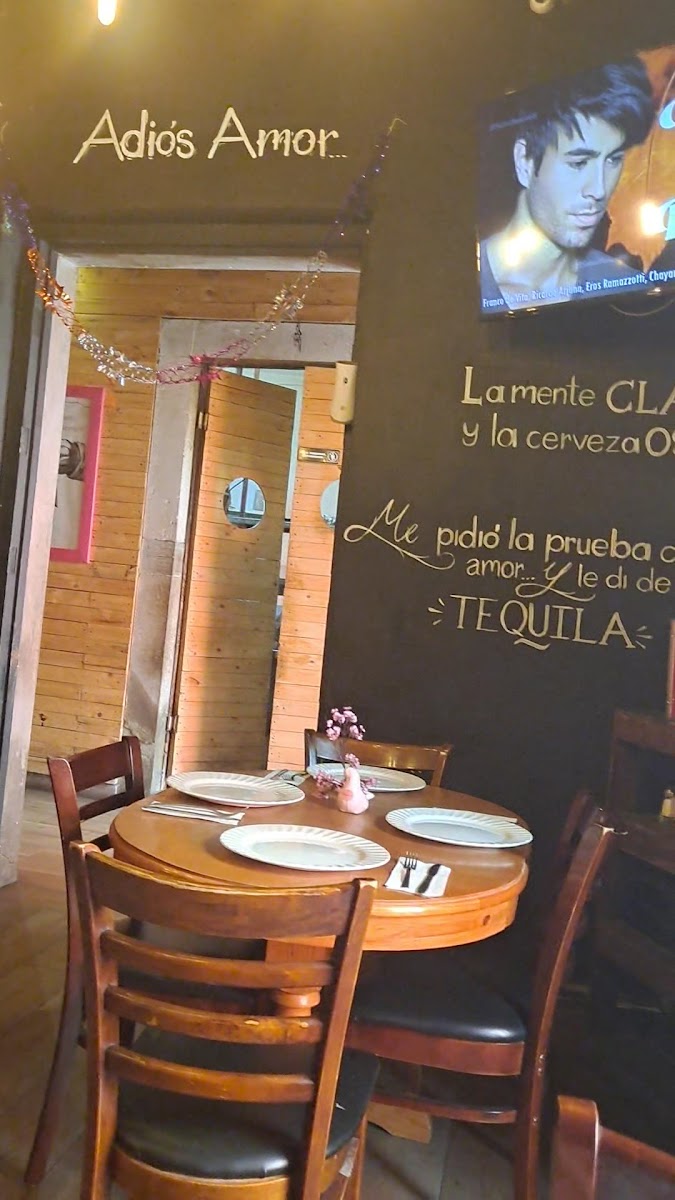 Adiós Amor...
Franco De Vita, Ricardo Arjona, Eros Ramazzotti, Chaya
La mente CLA
y la cerveza OS
Me pidió la prueba
amor... Y le di de
TEQUILA